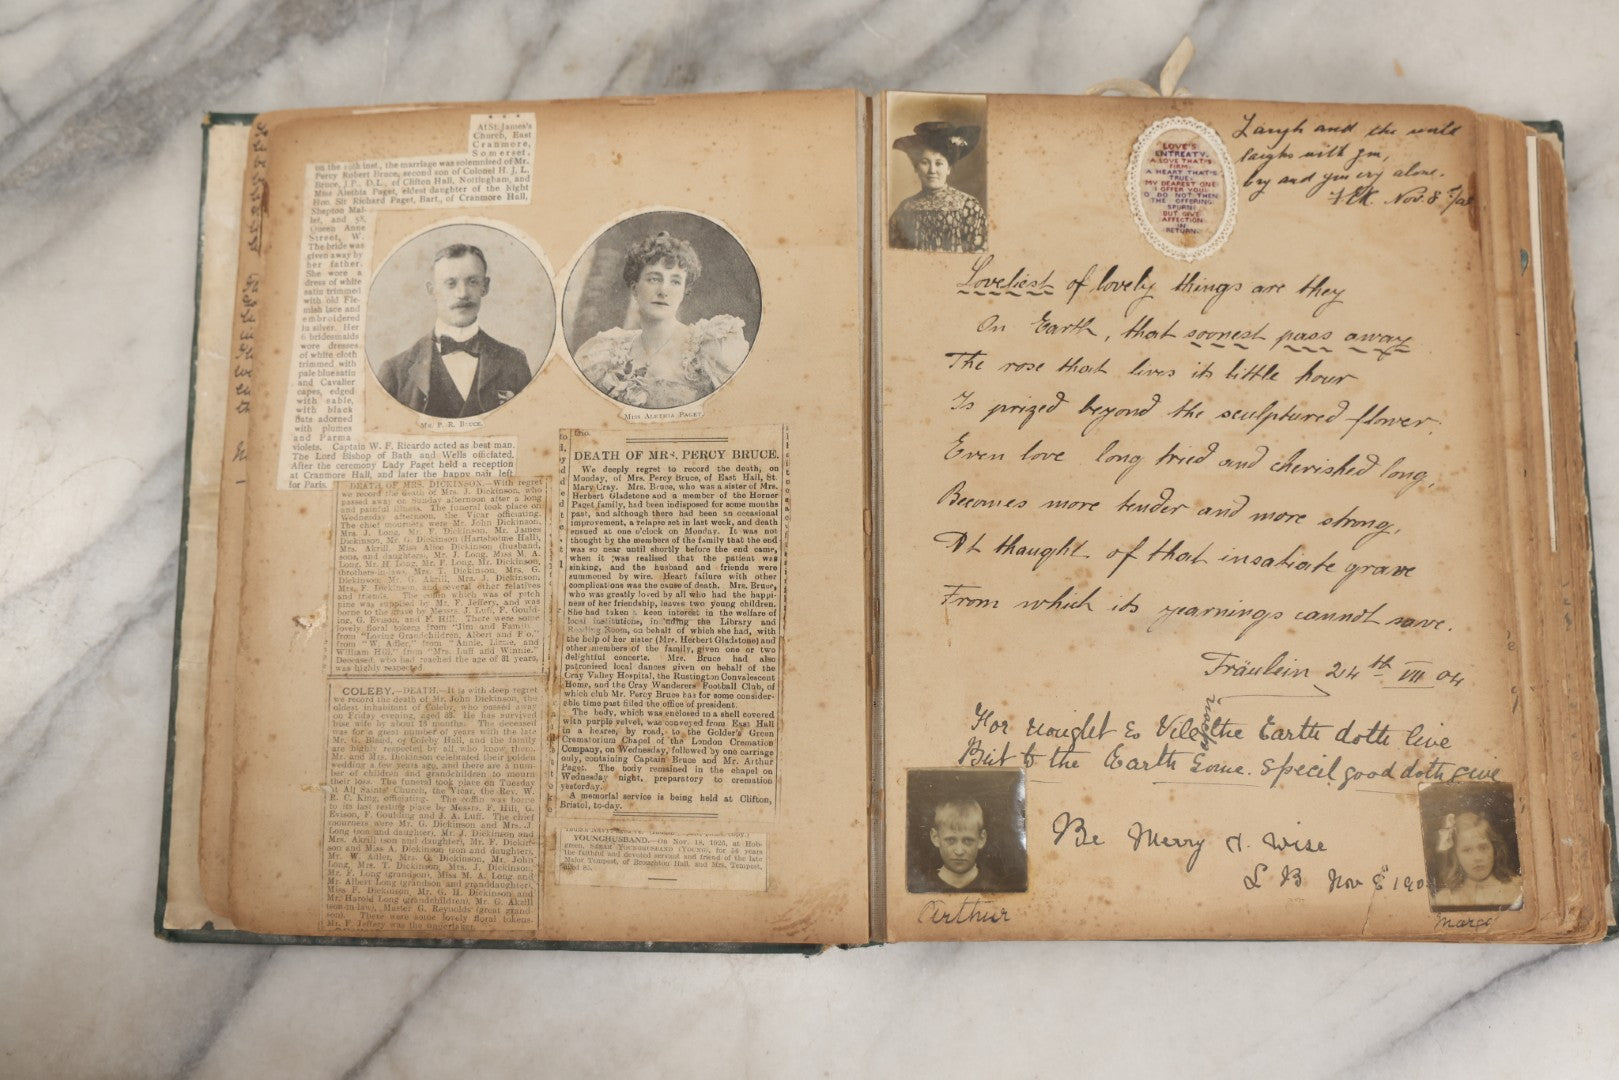 At St. James's
Church, East
Cranmore,
Somerset,
on the 10th inst., the marriage was solemnized of Mr.
Percy Robert Bruce, second son of Colonel H. J. L.
Bruce, J.P., D.L., of Clifton Hall, Nottingham, and
Miss Alethia Paget, eldest daughter of the Right
Hon. Sir Richard Paget, Bart., of Cranmore Hall,
Shepton Mal-
let, and 58,
Queen Anne
Street, W.
The bride was
given away by
her father.
She wore a
dress of white
satin trimmed
with old Fle-
mish lace and
embroidered
in silver. Her
6 bridesmaids
wore dresses
of white cloth
trimmed with
pale blue satin
and Cavalier
capes, edged
with sable,
with black
hats adorned
with plumes
and Parma
violets. Captain W. F. Ricardo acted as best man.
The Lord Bishop of Bath and Wells officiated.
After the ceremony Lady Paget held a reception
at Cranmore Hall, and later the happy pair left
for Paris.
Mr. P. R. Bruce.
Miss Alethia Paget.
DEATH OF MRS. DICKINSON.—With regret
we record the death of Mrs. J. Dickinson, who
passed away on Sunday afternoon after a long
and painful illness. The funeral took place on
Wednesday afternoon, the Vicar officiating.
The chief mourners were Mr. John Dickinson,
Mrs. J. Long, Mr. F. Dickinson, Mr. James
Dickinson, Mr. G. Dickinson (Hartsholme Hall),
Mrs. Akrill, Miss Alice Dickinson (husband,
sons, and daughters), Mr. J. Long, Miss M. A.
Long, Mr. H. Long, Mr. F. Long, Mr. Dickinson,
(brothers-in-law), Mrs. T. Dickinson, Mrs. G.
Dickinson, Mr. G. Akrill, Mrs. J. Dickinson,
Mrs. F. Dickinson, and several other relatives
and friends. The coffin which was of pitch
pine was supplied by Mr. F. Jeffery, and was
borne to the grave by Messrs. J. Luff, P. Gould-
ing, G. Evison, and F. Hill. There were some
lovely floral tokens from "Jim and Family,"
from "Loving Grandchildren, Albert and Flo,"
from "W. Adler," from "Annie, Lizzie, and
William Hill," from "Mrs. Luff and Winnie."
Deceased, who had reached the age of 81 years,
was highly respected.
COLEBY.—DEATH.—It is with deep regret
we record the death of Mr. John Dickinson, the
oldest inhabitant of Coleby, who passed away
on Friday evening, aged 88. He has survived
his wife by about 18 months. The deceased
was for a great number of years with the late
Mr. G. Bland, of Coleby Hall, and the family
are highly respected by all who know them.
Mr. and Mrs. Dickinson celebrated their golden
wedding a few years ago, and there are a num-
ber of children and grandchildren to mourn
their loss. The funeral took place on Tuesday
at All Saints' Church, the Vicar, the Rev. W.
R. C. King, officiating. The coffin was borne
to its last resting place by Messrs. F. Hill, G.
Evison, F. Goulding and J. A. Luff. The chief
mourners were Mr. G. Dickinson and Mrs. J.
Long (son and daughter), Mr. J. Dickinson and
Mrs. Akrill (son and daughter), Mr. F. Dickin-
son and Miss A. Dickinson (son and daughter),
Mr. W. Adler, Mrs. G. Dickinson, Mr. John
Long, Mrs. T. Dickinson, Mrs. J. Dickinson,
Mr. F. Long (grandson), Miss M. A. Long and
Mr. Albert Long (grandson and granddaughter),
Miss F. Dickinson, Mr. G. H. Dickinson and
Mr. Harold Long (grandchildren), Mr. G. Akrill
(son-in-law), Master G. Reynolds (great grand-
son). There were some lovely floral tokens.
Mr. F. Jeffery was the undertaker.
DEATH OF MRS. PERCY BRUCE.
We deeply regret to record the death, on
Monday, of Mrs. Percy Bruce, of East Hall, St.
Mary Cray. Mrs. Bruce, who was a sister of Mrs.
Herbert Gladstone and a member of the Horner
Paget family, had been indisposed for some months
past, and although there had been an occasional
improvement, a relapse set in last week, and death
ensued at one o'clock on Monday. It was not
thought by the members of the family that the end
was so near until shortly before the end came,
when it was realised that the patient was
sinking, and the husband and friends were
summoned by wire. Heart failure with other
complications was the cause of death. Mrs. Bruce,
who was greatly loved by all who had the happi-
ness of her friendship, leaves two young children.
She had taken a keen interest in the welfare of
local institutions, including the Library and
Reading Room, on behalf of which she had, with
the help of her sister (Mrs. Herbert Gladstone) and
other members of the family, given one or two
delightful concerts. Mrs. Bruce had also
patronised local dances given on behalf of the
Cray Valley Hospital, the Rustington Convalescent
Home, and the Cray Wanderers' Football Club, of
which club Mr. Percy Bruce has for some consider-
able time past filled the office of president.
The body, which was enclosed in a shell covered
with purple velvet, was conveyed from East Hall
in a hearse, by road, to the Golder's Green
Crematorium Chapel of the London Cremation
Company, on Wednesday, followed by one carriage
only, containing Captain Bruce and Mr. Arthur
Paget. The body remained in the chapel on
Wednesday night, preparatory to cremation
yesterday.
A memorial service is being held at Clifton,
Bristol, to-day.
YOUNGHUSBAND.—On Nov. 18, 1925, at Hob-
green, SUSAN YOUNGHUSBAND (YOUNG), for 56 years
the faithful and devoted servant and friend of the late
Major Tempest, of Broughton Hall, and Mrs. Tempest,
aged 85.
LOVE'S
ENTREATY.
A LOVE THAT'S
FIRM,
A HEART THAT'S
TRUE,
MY DEAREST ONE
I OFFER YOU;
O DO NOT THEN
THE OFFERING
SPURN
BUT GIVE
AFFECTION
IN
RETURN
Laugh and the world
laughs with you,
cry and you cry alone.
Nov. 8
Loveliest of lovely things are they
On Earth, that soonest pass away
The rose that lives its little hour
Is prized beyond the sculptured flower.
Even love long tried and cherished long,
Becomes more tender and more strong,
At thought of that insatiate grave
From which its yearnings cannot save.
Fräulein 24th VIII 04
For nought so Vile upon the Earth doth live
But to the Earth some specil good doth give
Be Merry & wise
L B Nov 8 190
Arthur